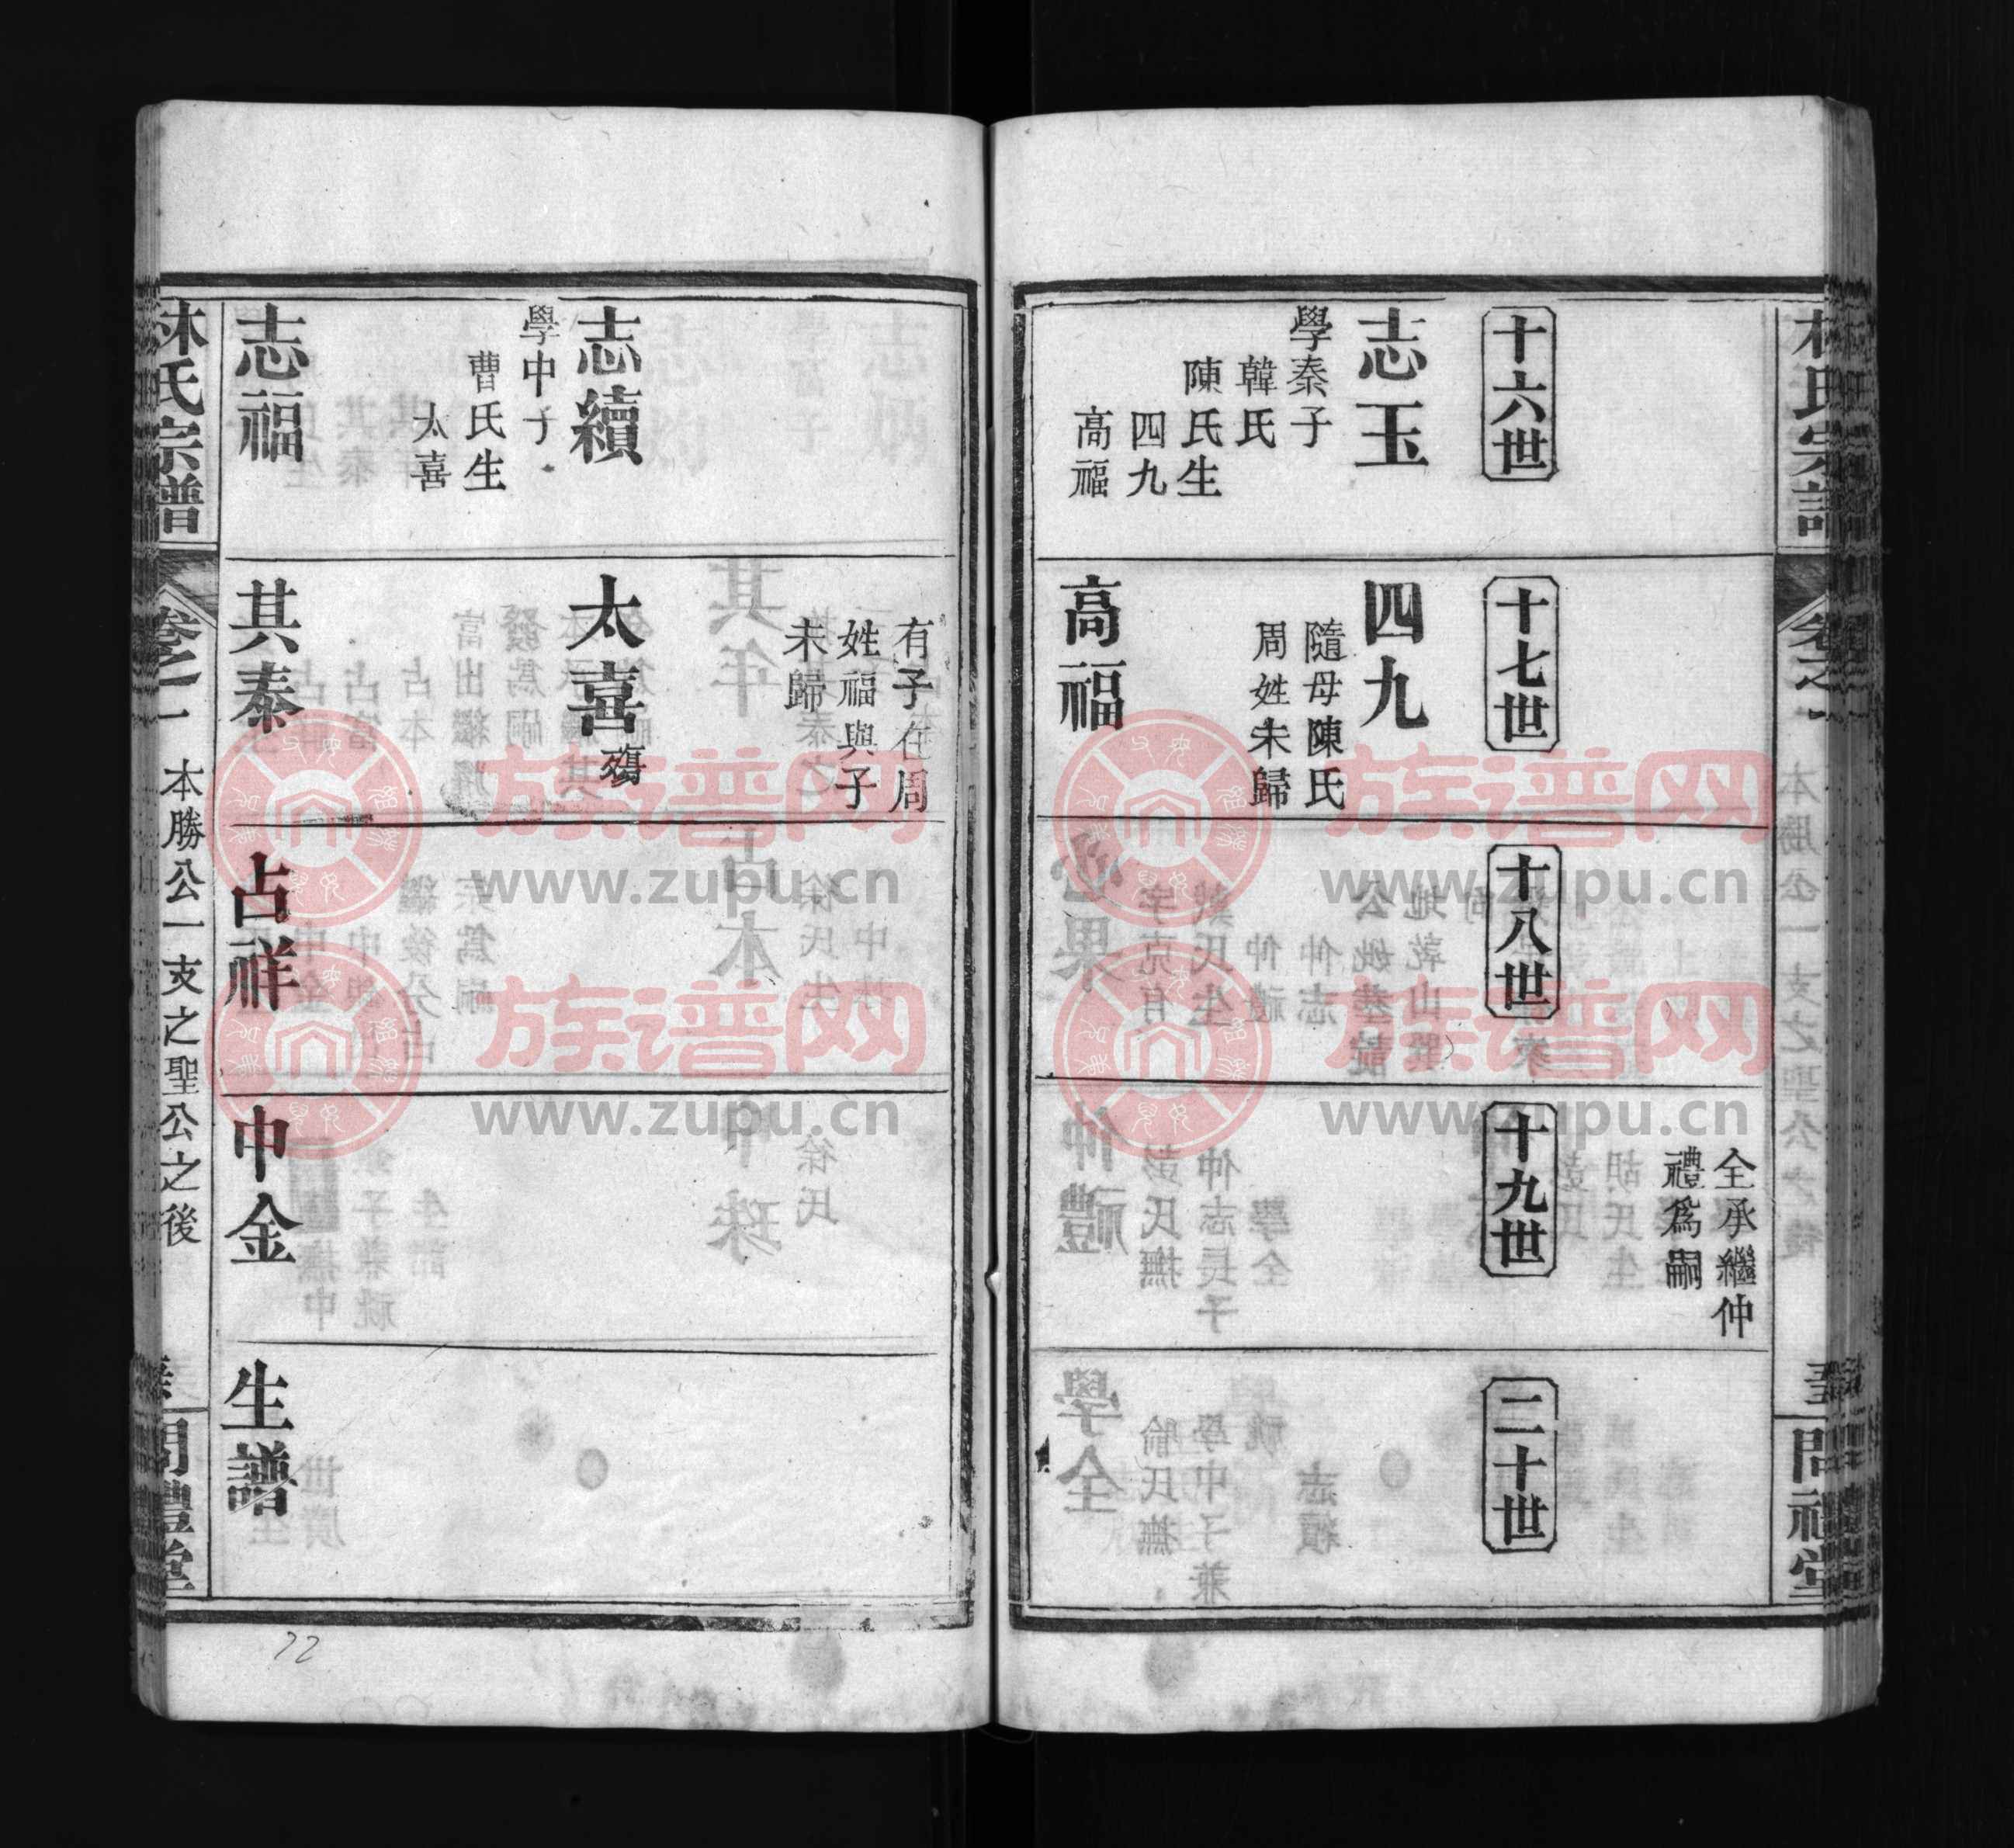 林氏宗譜
卷之一
本勝公一支之聖公之後
問禮堂
全承繼仲
禮爲嗣
十六世
十七世
十八世
十九世
二十世
志玉
學秦子
韓氏
陳氏生
四九
高福
四九
隨母陳氏
周姓未歸
高福
有子在周
姓福與子
未歸
志續
學中子
曹氏生
太喜
太喜殤
志福
其泰
占祥
中金
生譜
林氏宗譜
卷之一
本勝公一支之聖公之後
問禮堂
22
族谱网
www.zupu.cn
族谱网
www.zupu.cn
族谱网
www.zupu.cn
族谱网
www.zupu.cn